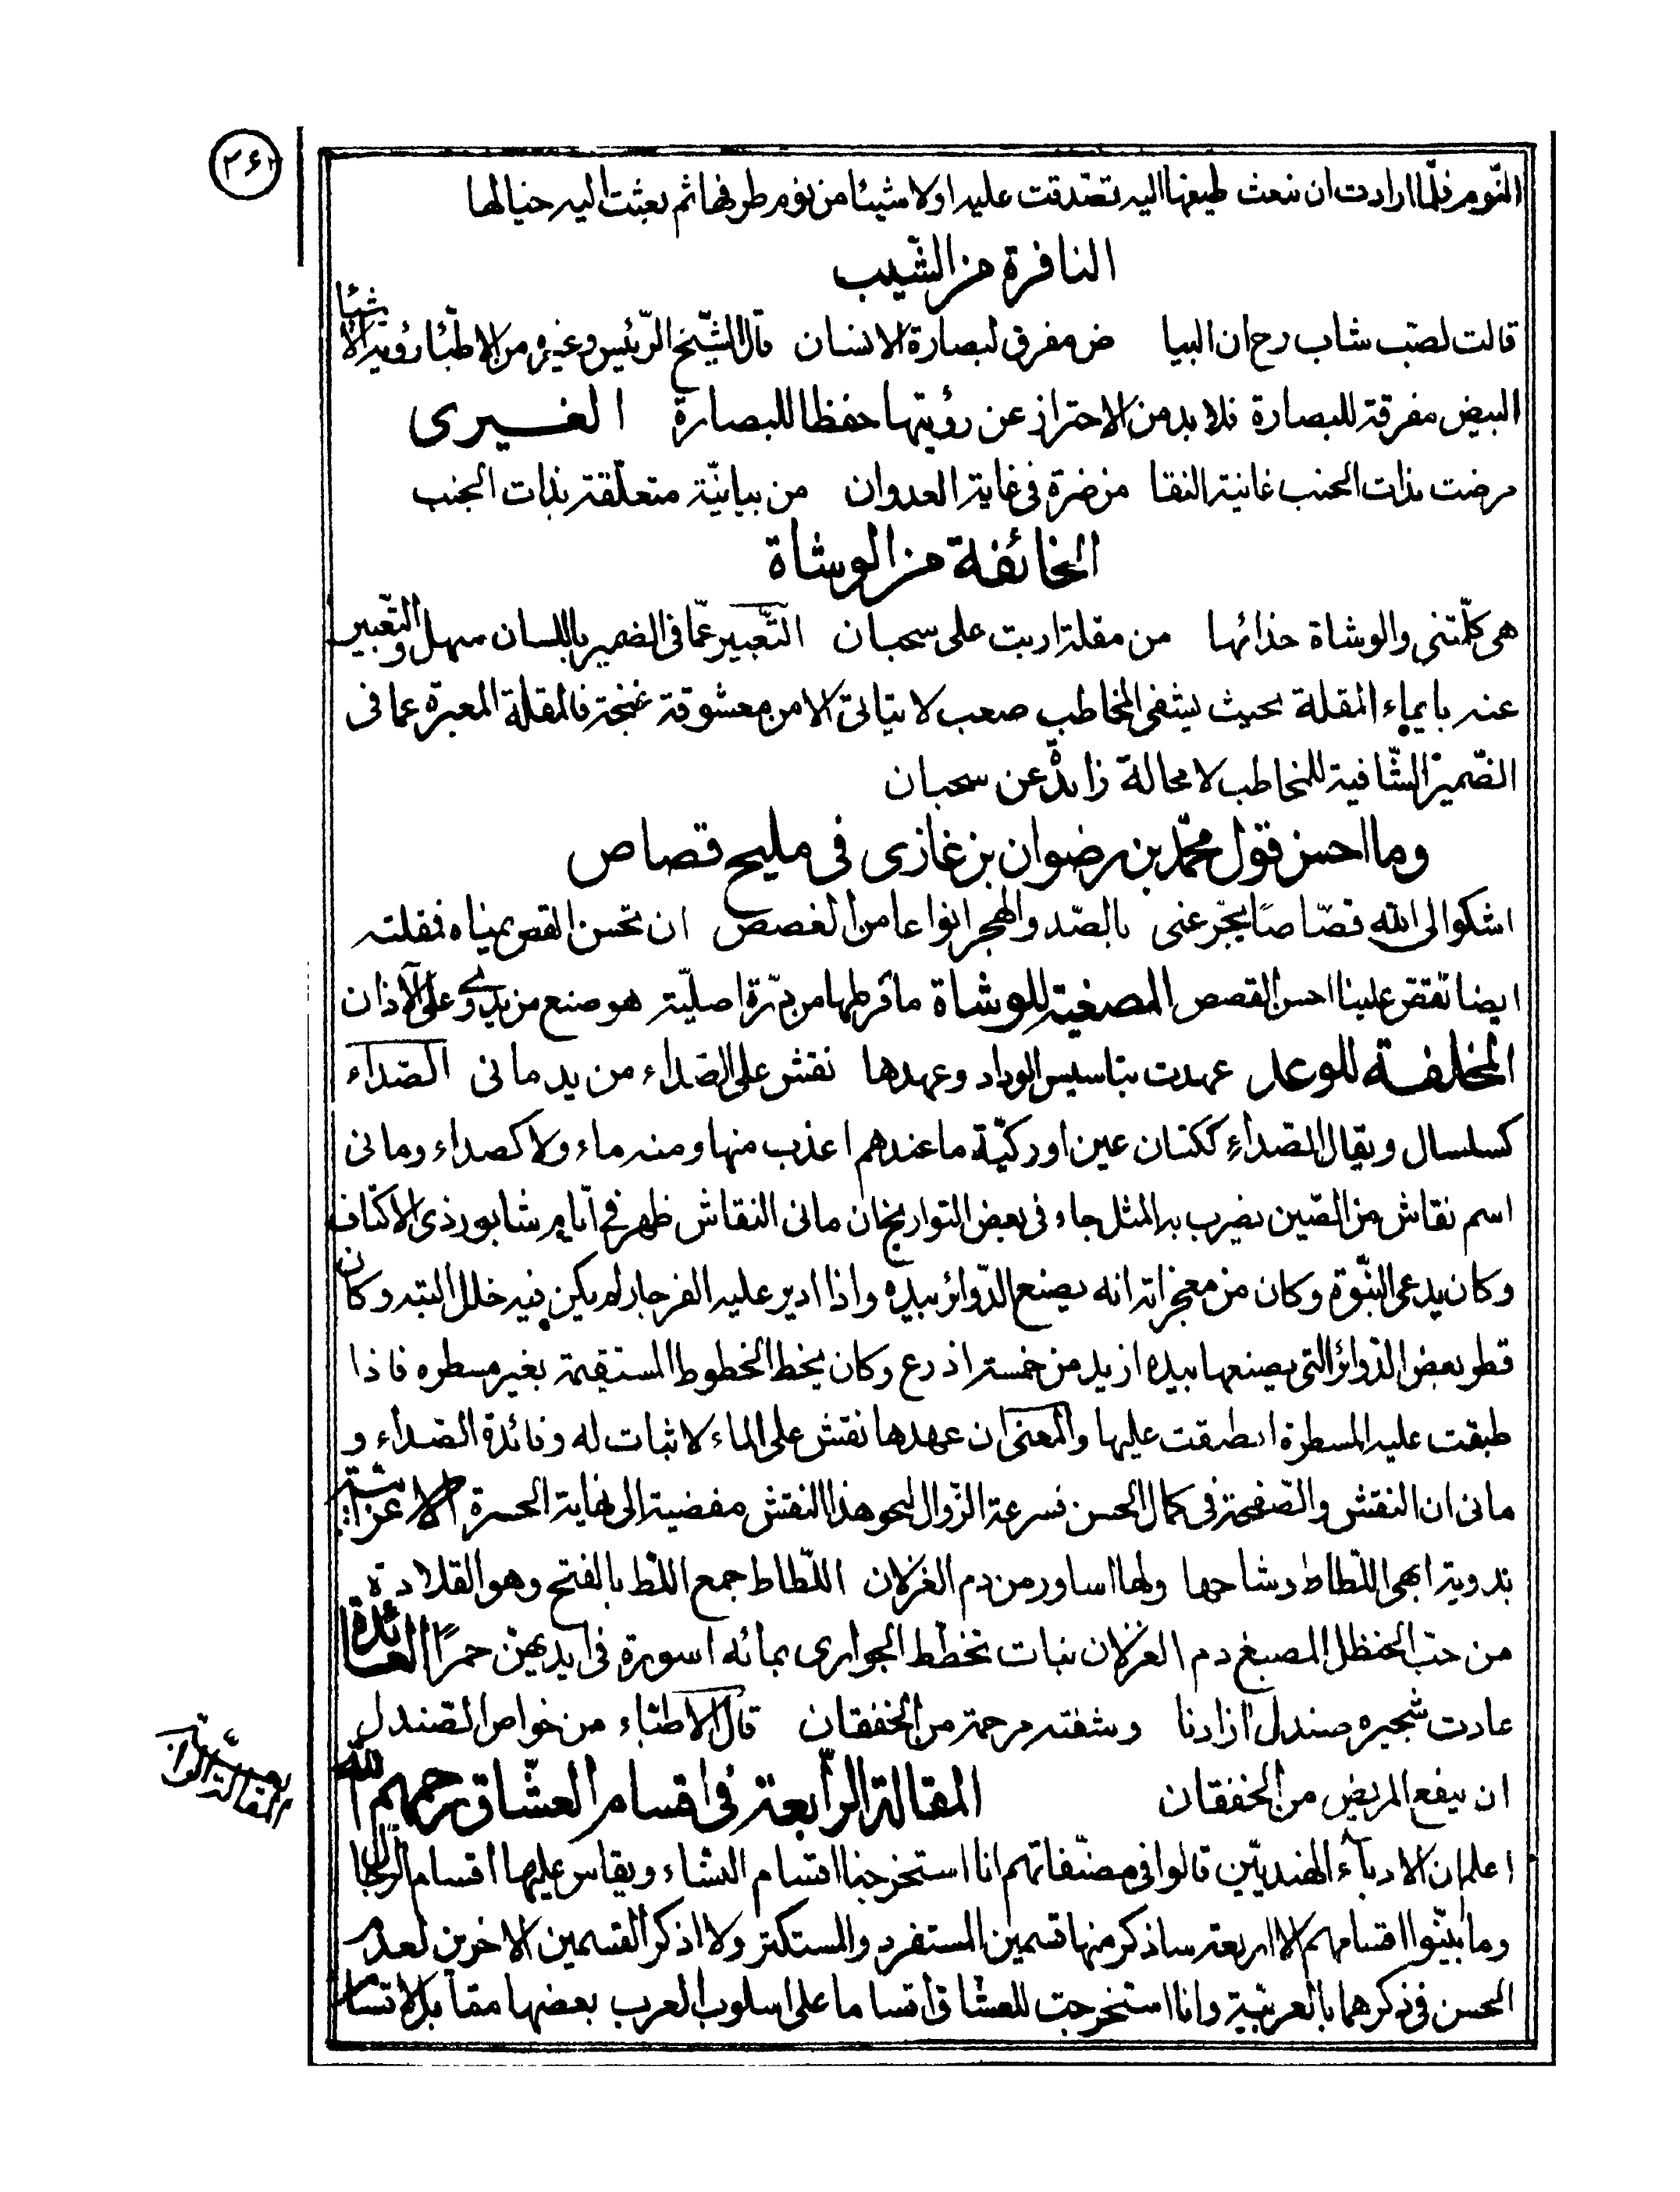 ٢٦٢
النّوم فلمّا ارادت ان تبعث طيفها اليه تصدّقت عليه اولا شيئا من نوم طرفها ثم بعثت اليه خيالها
النافرة من الشّيب
قالت لصبّ شاب رح ان البيا ض مفرق لبصارة الانسان قال الشّيخ الرّئيس وغيره من الاطبّاء رؤية الاشيا
البيض مفرقة للبصارة فلا بد من الاحتراز عن رؤيتها حفظا للبصارة الغيرى
مرضت بذات الجنب غانية النقا من ضرة فى غاية العدوان من بيانيّة متعلّقة بذات الجنب
الخائفة من الوشاة
هى كلّمتنى والوشاة حذائها من مقلة اربت على سحبان التّعبير عمّا فى الضمير باللسان سهل والتّعبير
عنه بايماء المقلة بحيث يشفى المخاطب صعب لا يتاتى الا من معشوقة غنجة فالمقلة المعبرة عما فى
الضّمير الشّافية للمخاطب لا محالة زائدة عن سحبان
وما احسن قول محمّد بن رضوان بن غازى فى مليح قصاص
اشكو الى الله قصّاصًا يجرّعنى بالصّد والهجر انواعا من الغصص ان تحسن القص يمناه فمقلته
ايضا تقص علينا احسن القصص المصغية للوشاة ما قرطها من درّة اصليّة هو صنع من يدوى على الآذان
المخلفة للوعد عهدت بتاسيس الوداد وعهدها نقش على الصّداء من يد مانى الصّداء
كسلسال ويقال الصّداء ككتان عين او ركيّة ما عندهم اعذب منها ومنه ماء ولا كصداء ومانى
اسم نقاش من الصّين يضرب به المثل جاء فى بعض التواريخ ان مانى النقاش ظهر فى ايّام شابور ذى الاكتاف
وكان يدعى النبّوة وكان من معجزاته انه يصنع الدّوائر بيده واذا ادير عليه الفرجار لم يكن فيه خلل البتة وكان
قطر بعض الدّوائر التى يصنعها بيده ازيد من خمسة اذرع وكان يخط الخطوط المستقيمة بغير مسطره فاذا
طبقت عليه المسطرة انطبقت عليها والمعنى ان عهدها نقش على الماء لا ثبات له وفائدة الصّداء و
مانى ان النقش والصّفحة فى كمال الحسن فسرعة الزّوال لنحو هذا النقش مفضية الى نهاية الحسرة
بدوية ابهى اللّطاط وشاحها ولها اساور من دم الغزلان اللّطاط جمع اللّط بالفتح وهو القلادة
من حبّ الحنظل المصبغ دم الغزلان نبات تخطط الجوارى بمائه اسورة فى ايديهنّ حمرًا العائدة
عادت شجيره صندل ازادنا وشفته مرحمة من الخفقان قال الاطبّاء من خواص الصّندل
ان ينفع المريض من الخفقان المقالة الرّابعة فى اقسام العشّاق رحمهم الله
اعلم ان الادباء الهنديّين قالوا فى مصنّفاتهم انا استخرجنا اقسام النساء ويقاس عليها اقسام الرجال
وما بيّنوا اقسامهم الا اربعة ساذكر منها قسمين المستفرد والمستكثر ولا اذكر القسمين الاخرين لعدم
الحسن فى ذكرهما بالعربيّة وانا استخرجت للعشّاق اقساما على اسلوب العرب بعضها مقابلا لاقسام